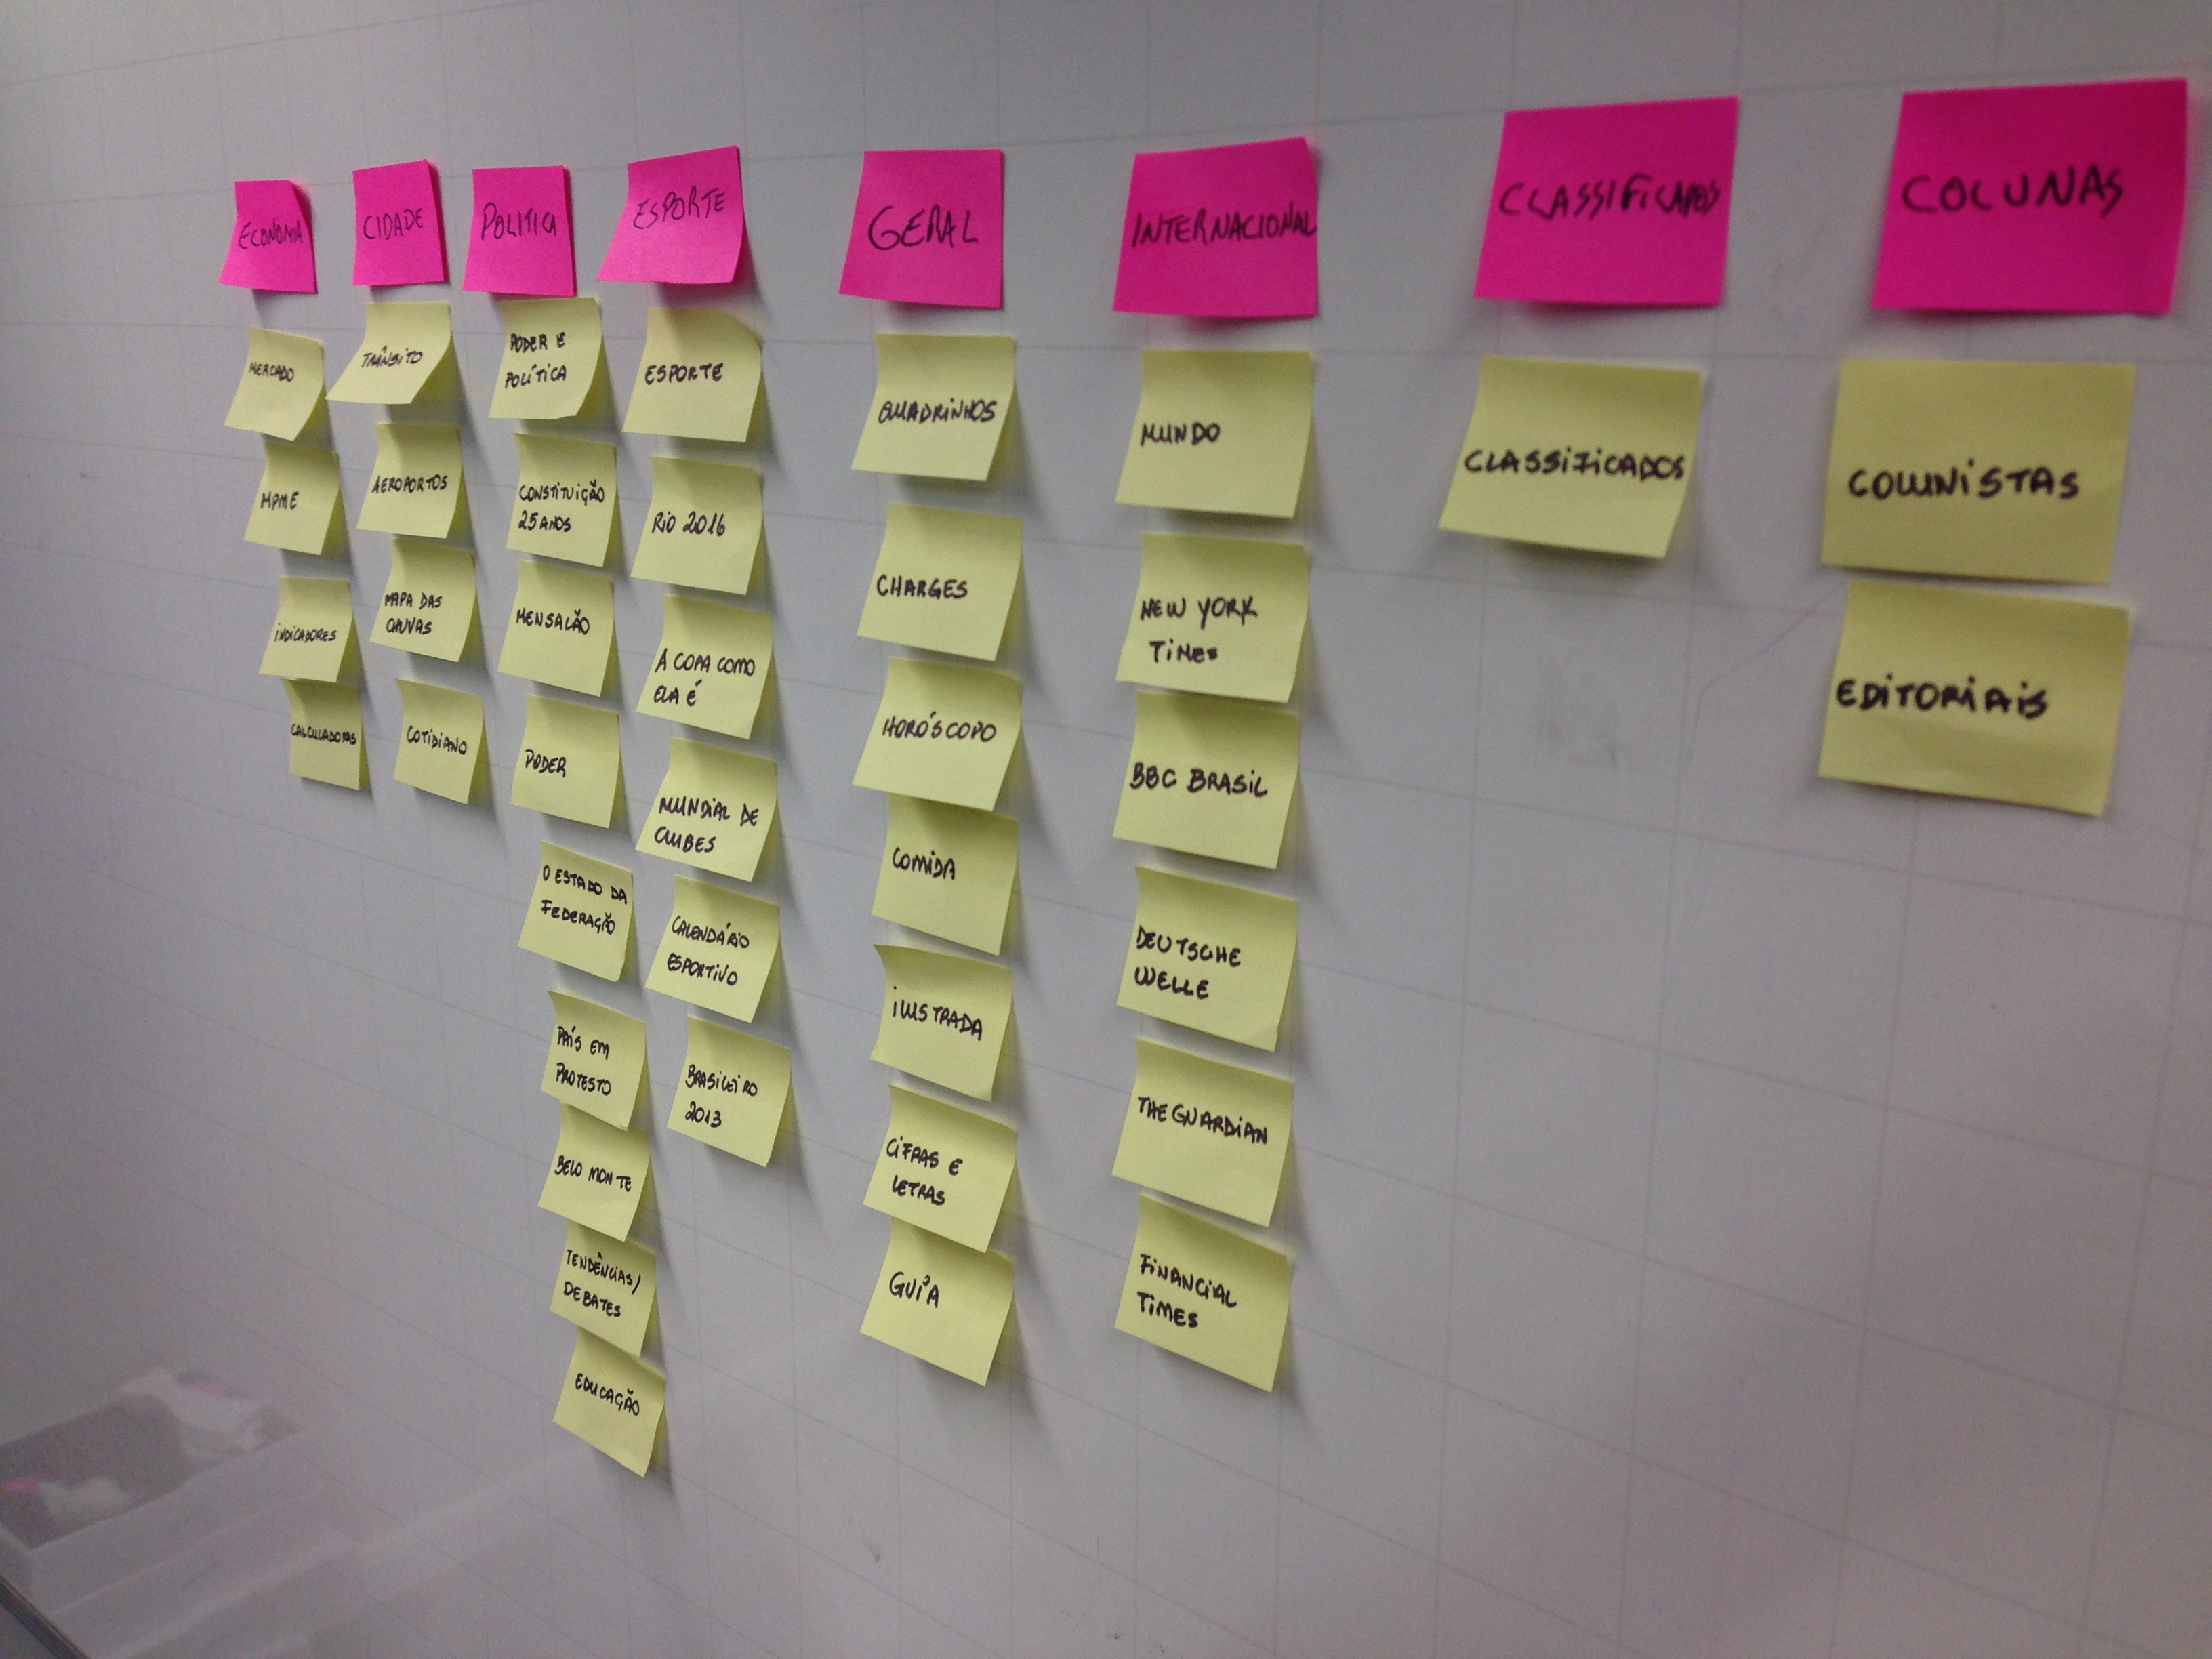 ECONOMIA
MERCADO
MPME
INDICADORES
CALCULADORAS
CIDADE
TRÂNSITO
AEROPORTOS
MAPA DAS
CHUVAS
COTIDIANO
POLITICA
PODER E
POLÍTICA
CONSTITUIÇÃO
25 ANOS
MENSALÃO
PODER
O ESTADO DA
FEDERAÇÃO
PAÍS EM
PROTESTO
BELO MONTE
TENDÊNCIAS/
DEBATES
EDUCAÇÃO
ESPORTE
ESPORTE
RIO 2016
A COPA COMO
ELA É
MUNDIAL DE
CLUBES
CALENDÁRIO
ESPORTIVO
BRASILEIRO
2013
GERAL
QUADRINHOS
CHARGES
HORÓSCOPO
COMIDA
ILUSTRADA
CIFRAS E
LETRAS
GUÍA
INTERNACIONAL
MUNDO
NEW YORK
TIMES
BBC BRASIL
DEUTSCHE
WELLE
THE GUARDIAN
FINANCIAL
TIMES
CLASSIFICADOS
CLASSIFICADOS
COLUNAS
COLUNISTAS
EDITORIAIS